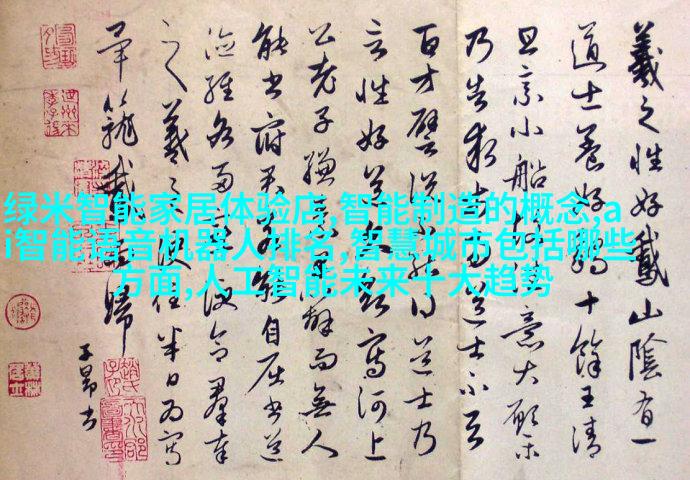 绿米智能家居体验店,智能制造的概念,a
i智能语音机器人排名,智慧城市包括哪些
方面,人工智能未来十大趋势
羲之性好鵞山陰有一
道士養好鵝十餘王清
旦乘小船意大願樂
乃告求市易道士不與
百方譬說不能得道士乃
言性好道久欲寫河上
公老子縑素早辦而無人
能書府君若能自屈書道
德經各兩章便合羣奉
羲之便住半日為寫
畢籠鵝而歸
子昂書